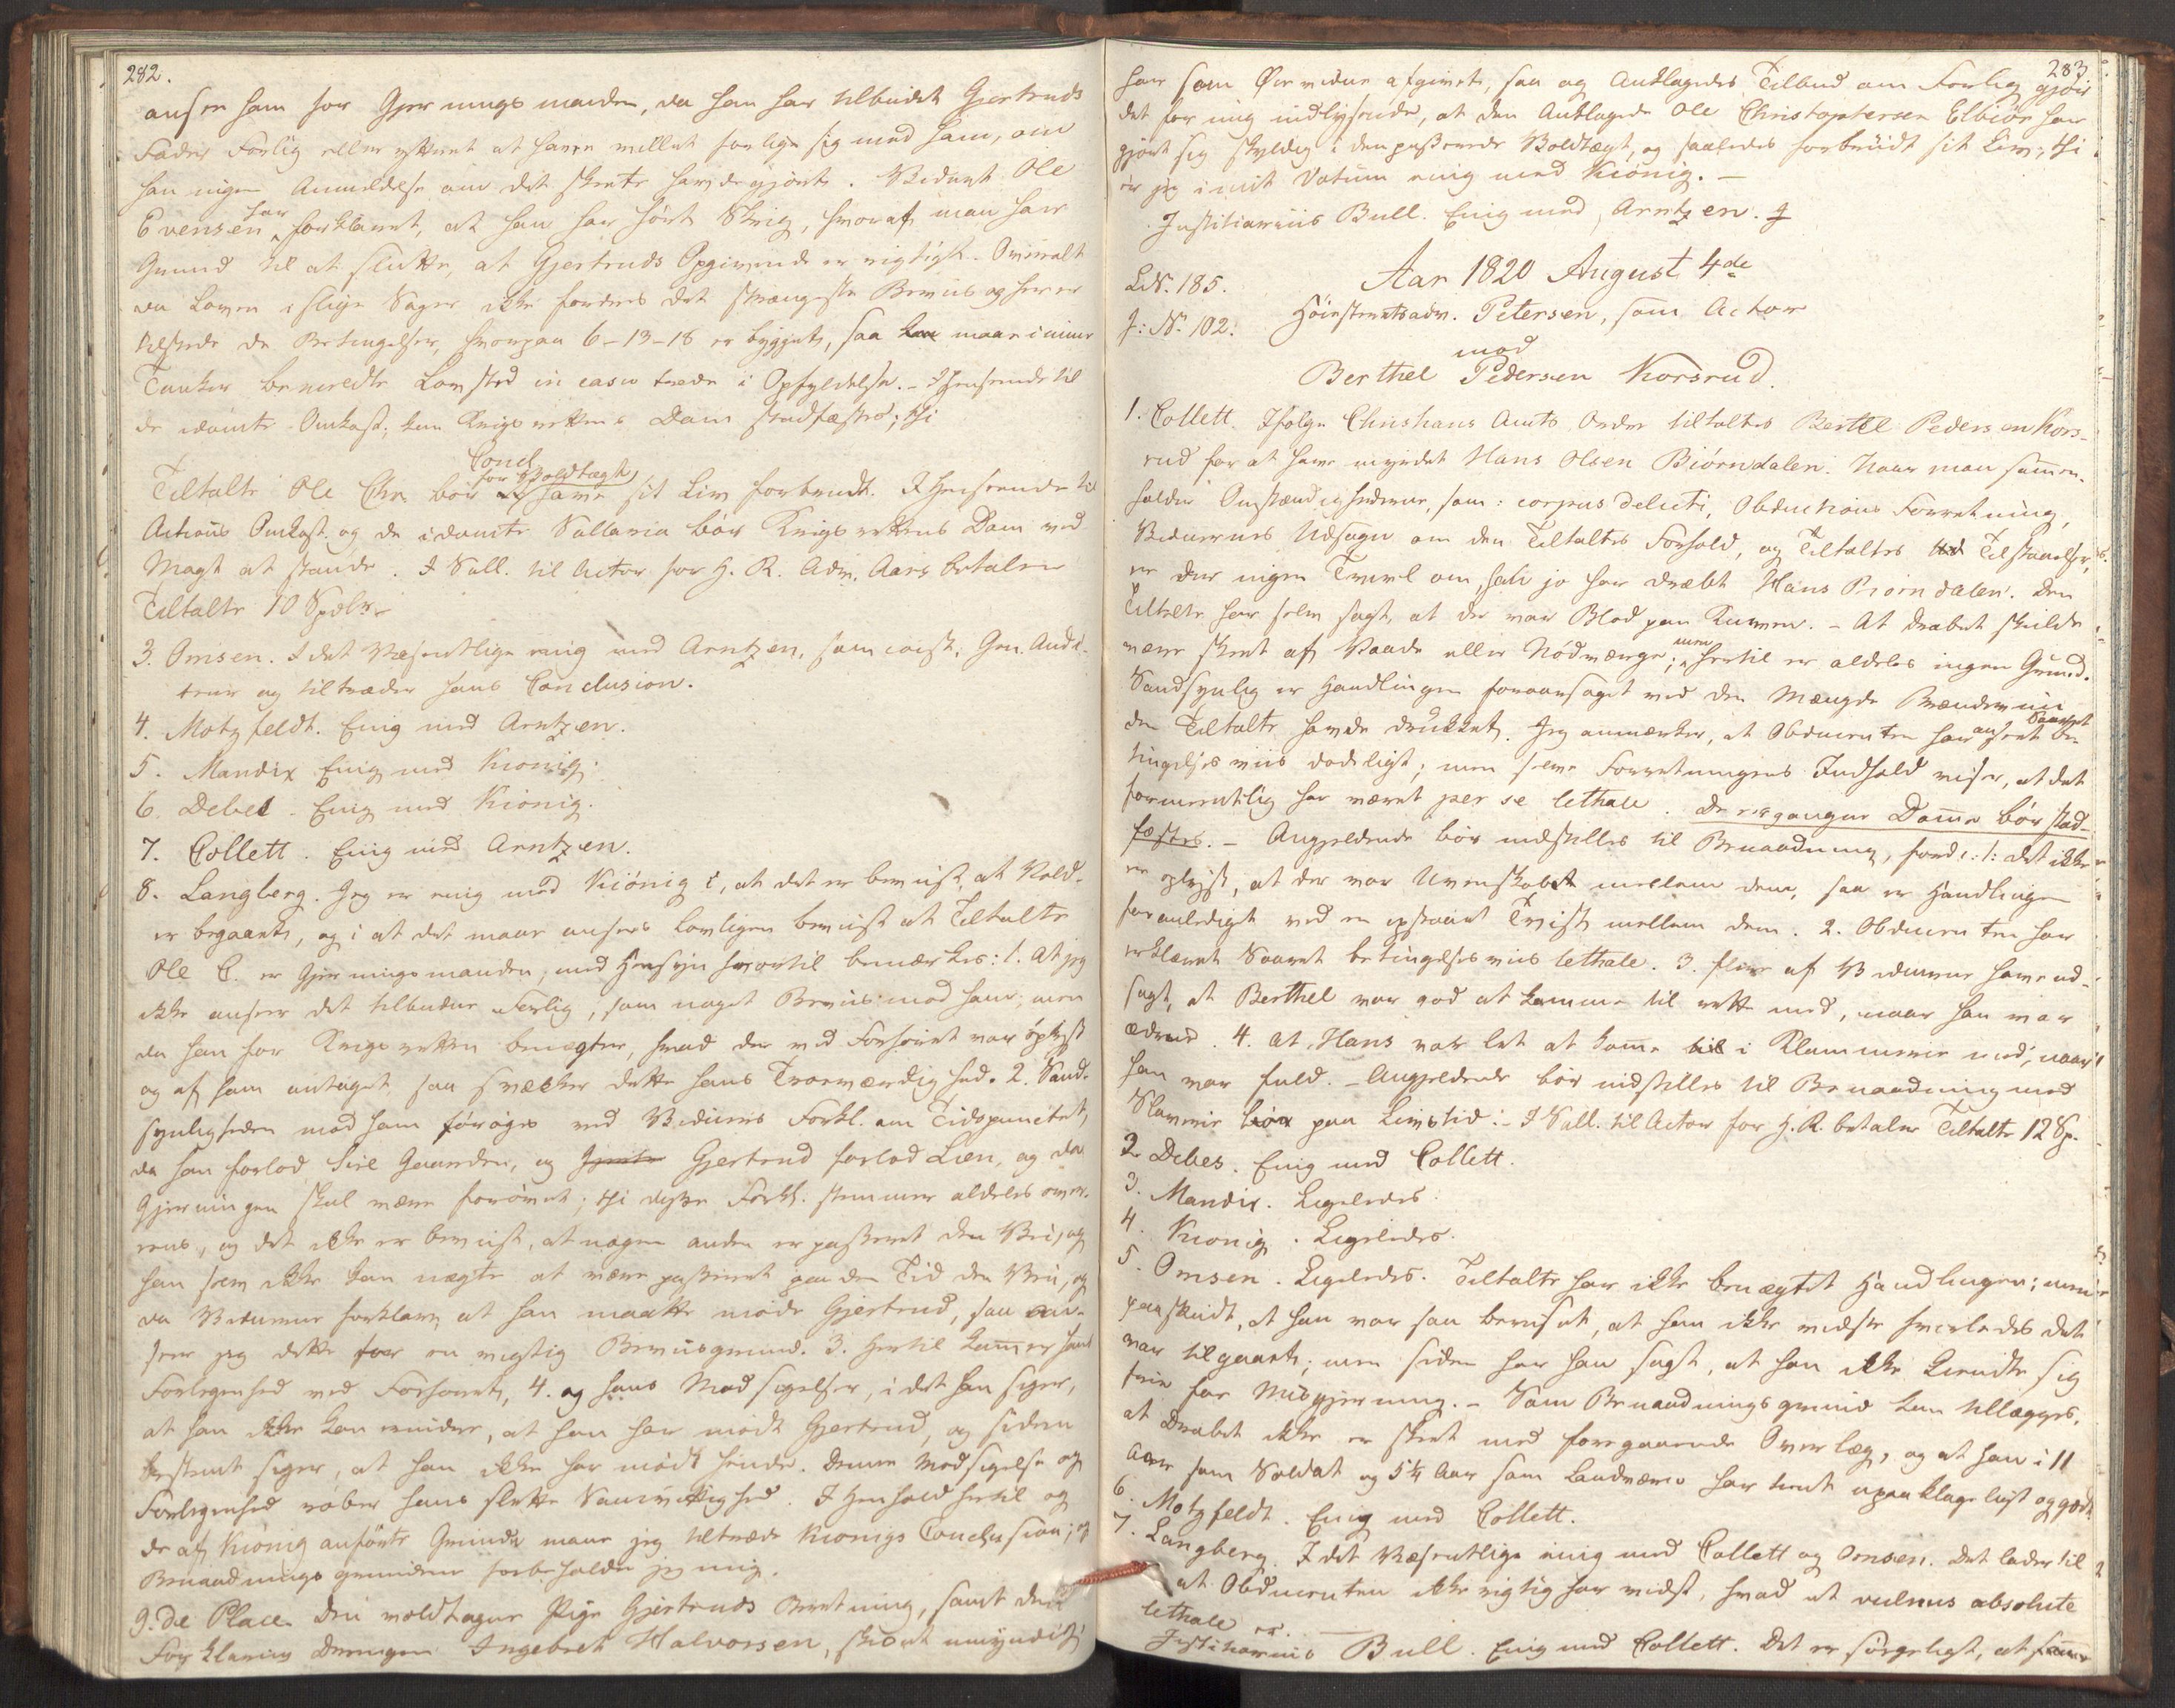 282.
anser ham for Gjerningsmanden, da han har tilbudet Gjertruds
Fader Forlig eller yttret at have villet forlige sig med ham, om
han ingen Anmeldelse om det skeete havde gjort. Vidnet Ole
Evensen har forklaret, at han har hørt Skrig, hvoraf man har
Grund til at slutte, at Gjertruds Opgivende er rigtigt. Overalt
da Loven i slige Sager ikke fordrer det strængeste Beviis og her er
tilstede de Betingelser, hvorpaa 6-13-18 er bygget, saa maae i mine
Tanker benævnte Lovsted in casu træde i Opfyldelse. - I Henseende til
de idømte Omkost. kan Krigsrettens Dom stadfæstes; thi
Concl.
Tiltalte Ole Chr. bør for Voldtægt have sit Liv forbrudt. I Henseende til
Actions Omkost. og de idømte Sallaria bør Krigsrettens Dom ved
Magt at stande. I Sall. til Actor for H. R. Adv. Aars betaler
Tiltalte 10 Spdlr. -
3. Omsen. I det Væsentlige enig med Arntzen, som const. Gen. Audi-
teur og tiltræder hans Conclusion.
4. Motzfeldt. Enig med Arntzen.
5. Mandix. Enig med Kiönig.
6. Debes. Enig med Kiönig.
7. Collett. Enig med Arntzen.
8. Langberg. Jeg er enig med Kiönig i, at det er beviist, at Vold-
er begaaet, og i at det maae ansees lovligen beviist at Tiltalte
Ole C. er Gjerningsmanden, med Hensyn hvortil bemærkes: 1. At jeg
ikke anseer det tilbudne Forlig, som noget Beviis mod ham; men
da han for Krigsretten benægter, hvad der ved Forhöret var oplyst
og af ham antaget, saa svækker dette hans Troværdighed. 2. Sand-
synligheden mod ham forøges ved Vidnernes Forkl. om Tidspunctet,
da han forlod Gaarden, og Gjertrud forlod Lien, og da
Gjerningen skal være forøvet; thi disse Forkl. stemmer aldeles over-
eens, og det ikke er beviist, at nogen anden er passeret den Vei, og
han selv ikke kan nægte at være passeret paa den Tid den Vei, og
da Vidnerne forklare, at han maatte møde Gjertrud, saa an-
seer jeg dette for en vigtig Beviisgrund. 3. Hertil kommer hans
Forlegenhed ved Forhöret, 4. og hans Modsigelser, i det han siger,
at han ikke kan erindre, at han har mödt Gjertrud, og siden
bestemt siger, at han ikke har mödt hende. Denne Modsigelse og
Forlegenhed røber hans slette Samvittighed. I Henhold hertil og
de af Kiönig anførte Grunde maae jeg tiltræde Kiönigs Conclusion; og
Benaadningsgrundene forbeholder jeg mig.
9. de Place. Den voldtagne Pige Gjertruds Beretning, samt den
Forklaring Drengen Ingebret Halvorsen, skiönt umyndig,
283.
har som Øievidne afgivet, saa og Anklagedes Tilbud om Forlig gjör
det for mig indlysende, at den Anklagede Ole Christophersen Elbiör har
gjort sig skyldig i den passerede Voldtægt, og saaledes forbrudt sit Liv; thi
er jeg i mit Votum enig med Kiönig. -
Justitiarius Bull. Enig med Arntzen.
LN. 185.
Aar 1820 August 4de
J: N. 102.
Höiesteretsadv. Petersen, som Actor
mod
Berthel Pedersen Korsrud.
1. Collett. Ifølge Christians Amts Order tiltaltes Bertel Pedersen Kors-
rud for at have myrdet Hans Olsen Biörndalen. Naar man sammen-
holder Omstændighederne, som: corpus delicti, Obductions Forretning,
Vidnernes Udsagn om den Tiltaltes Forhold, og Tiltaltes Tilstaaelse,
er der ingen Tvivl om, han jo har dræbt Hans Biörndalen. Den
Tiltalte har selv sagt, at der var Blod paa Kniven. - At Drabet skulde
være skeet af Vaade eller Nödværge; men hertil er aldeles ingen Grund.
Sandsynlig er Handlingen foraarsaget ved den Mængde Brændeviin
den Tiltalte havde drukket. Jeg anmærker, at Obducenten har anseet Saaret be-
tingelsesviis dødeligt; men selve Forretningens Indhold viser, at det
formeentlig har været per se lethale. De ergangne Domme bör stad-
fæstes. - Angjeldende bør indstilles til Benaadning, fordi: 1: det ikke
er oplyst, at der var Uvenskab mellem dem, saa er Handlingen
foranlediget ved en opstaaet Tvist mellem dem. 2. Obducenten har
erklæret Saaret betingelsesviis lethale. 3. flere af Vidnerne have ud-
sagt, at Berthel var god at komme til rette med, naar han var
ædrue. 4. at Hans var let at komme i Klammerie med, naar
han var fuld. - Angjeldende bör indstilles til Benaadning med
Slaverie paa Livstid: - I Sall. til Actor for H. R. betaler Tiltalte 12 Sp.
2. Debes. Enig med Collett.
3. Mandix. Ligeledes.
4. Kiönig. Ligeledes.
5. Omsen. Ligeledes. Tiltalte har ikke benægtet Handlingen; men
paaskudt, at han var saa beruset, at han ikke vidste hvorledes det
var tilgaaet; men siden har han sagt, at han ikke kiendte sig
frie for Misgjerning. - Som Benaadningsgrund kan tillægges,
at Drabet ikke er skeet med foregaaende Overlæg, og at han i 11
Aar som Soldat og 5 1/4 Aar som Landværn har tient upaaklageligt og godt.
6. Motzfeldt. Enig med Collett.
7. Langberg. I det Væsentlige enig med Collett og Omsen. Det lader til
at Obducenten ikke rigtig har vidst, hvad et vulnus absolute
lethale er. -
Justitiarius Bull. Enig med Collett. Det er sørgeligt, at